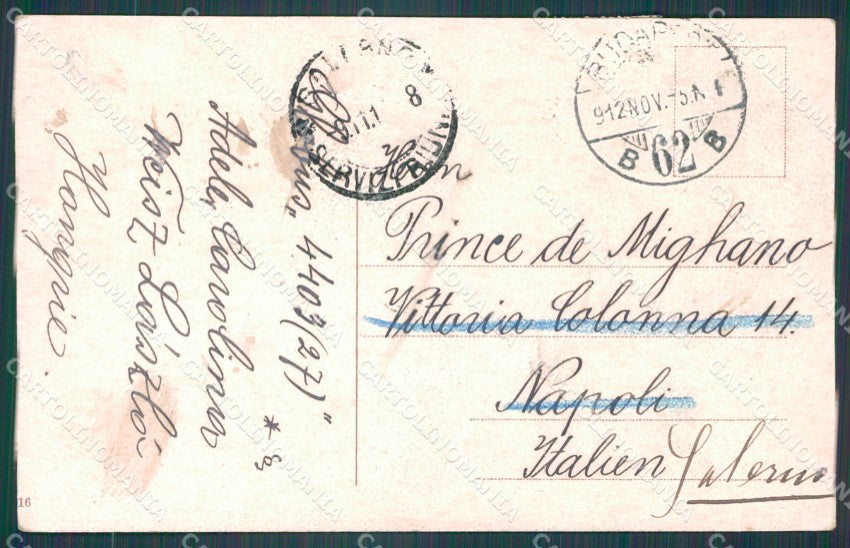 BUDAPEST
912 NOV.-5.
B 62 B
8
Herrn
Prince de Mighano
Vittoria Colonna 14.
Napoli
Italien Salerno
4403 (27)"
Adél, Carolina
Weisz László
Hongrie.
16
CARTOLINOMANIA